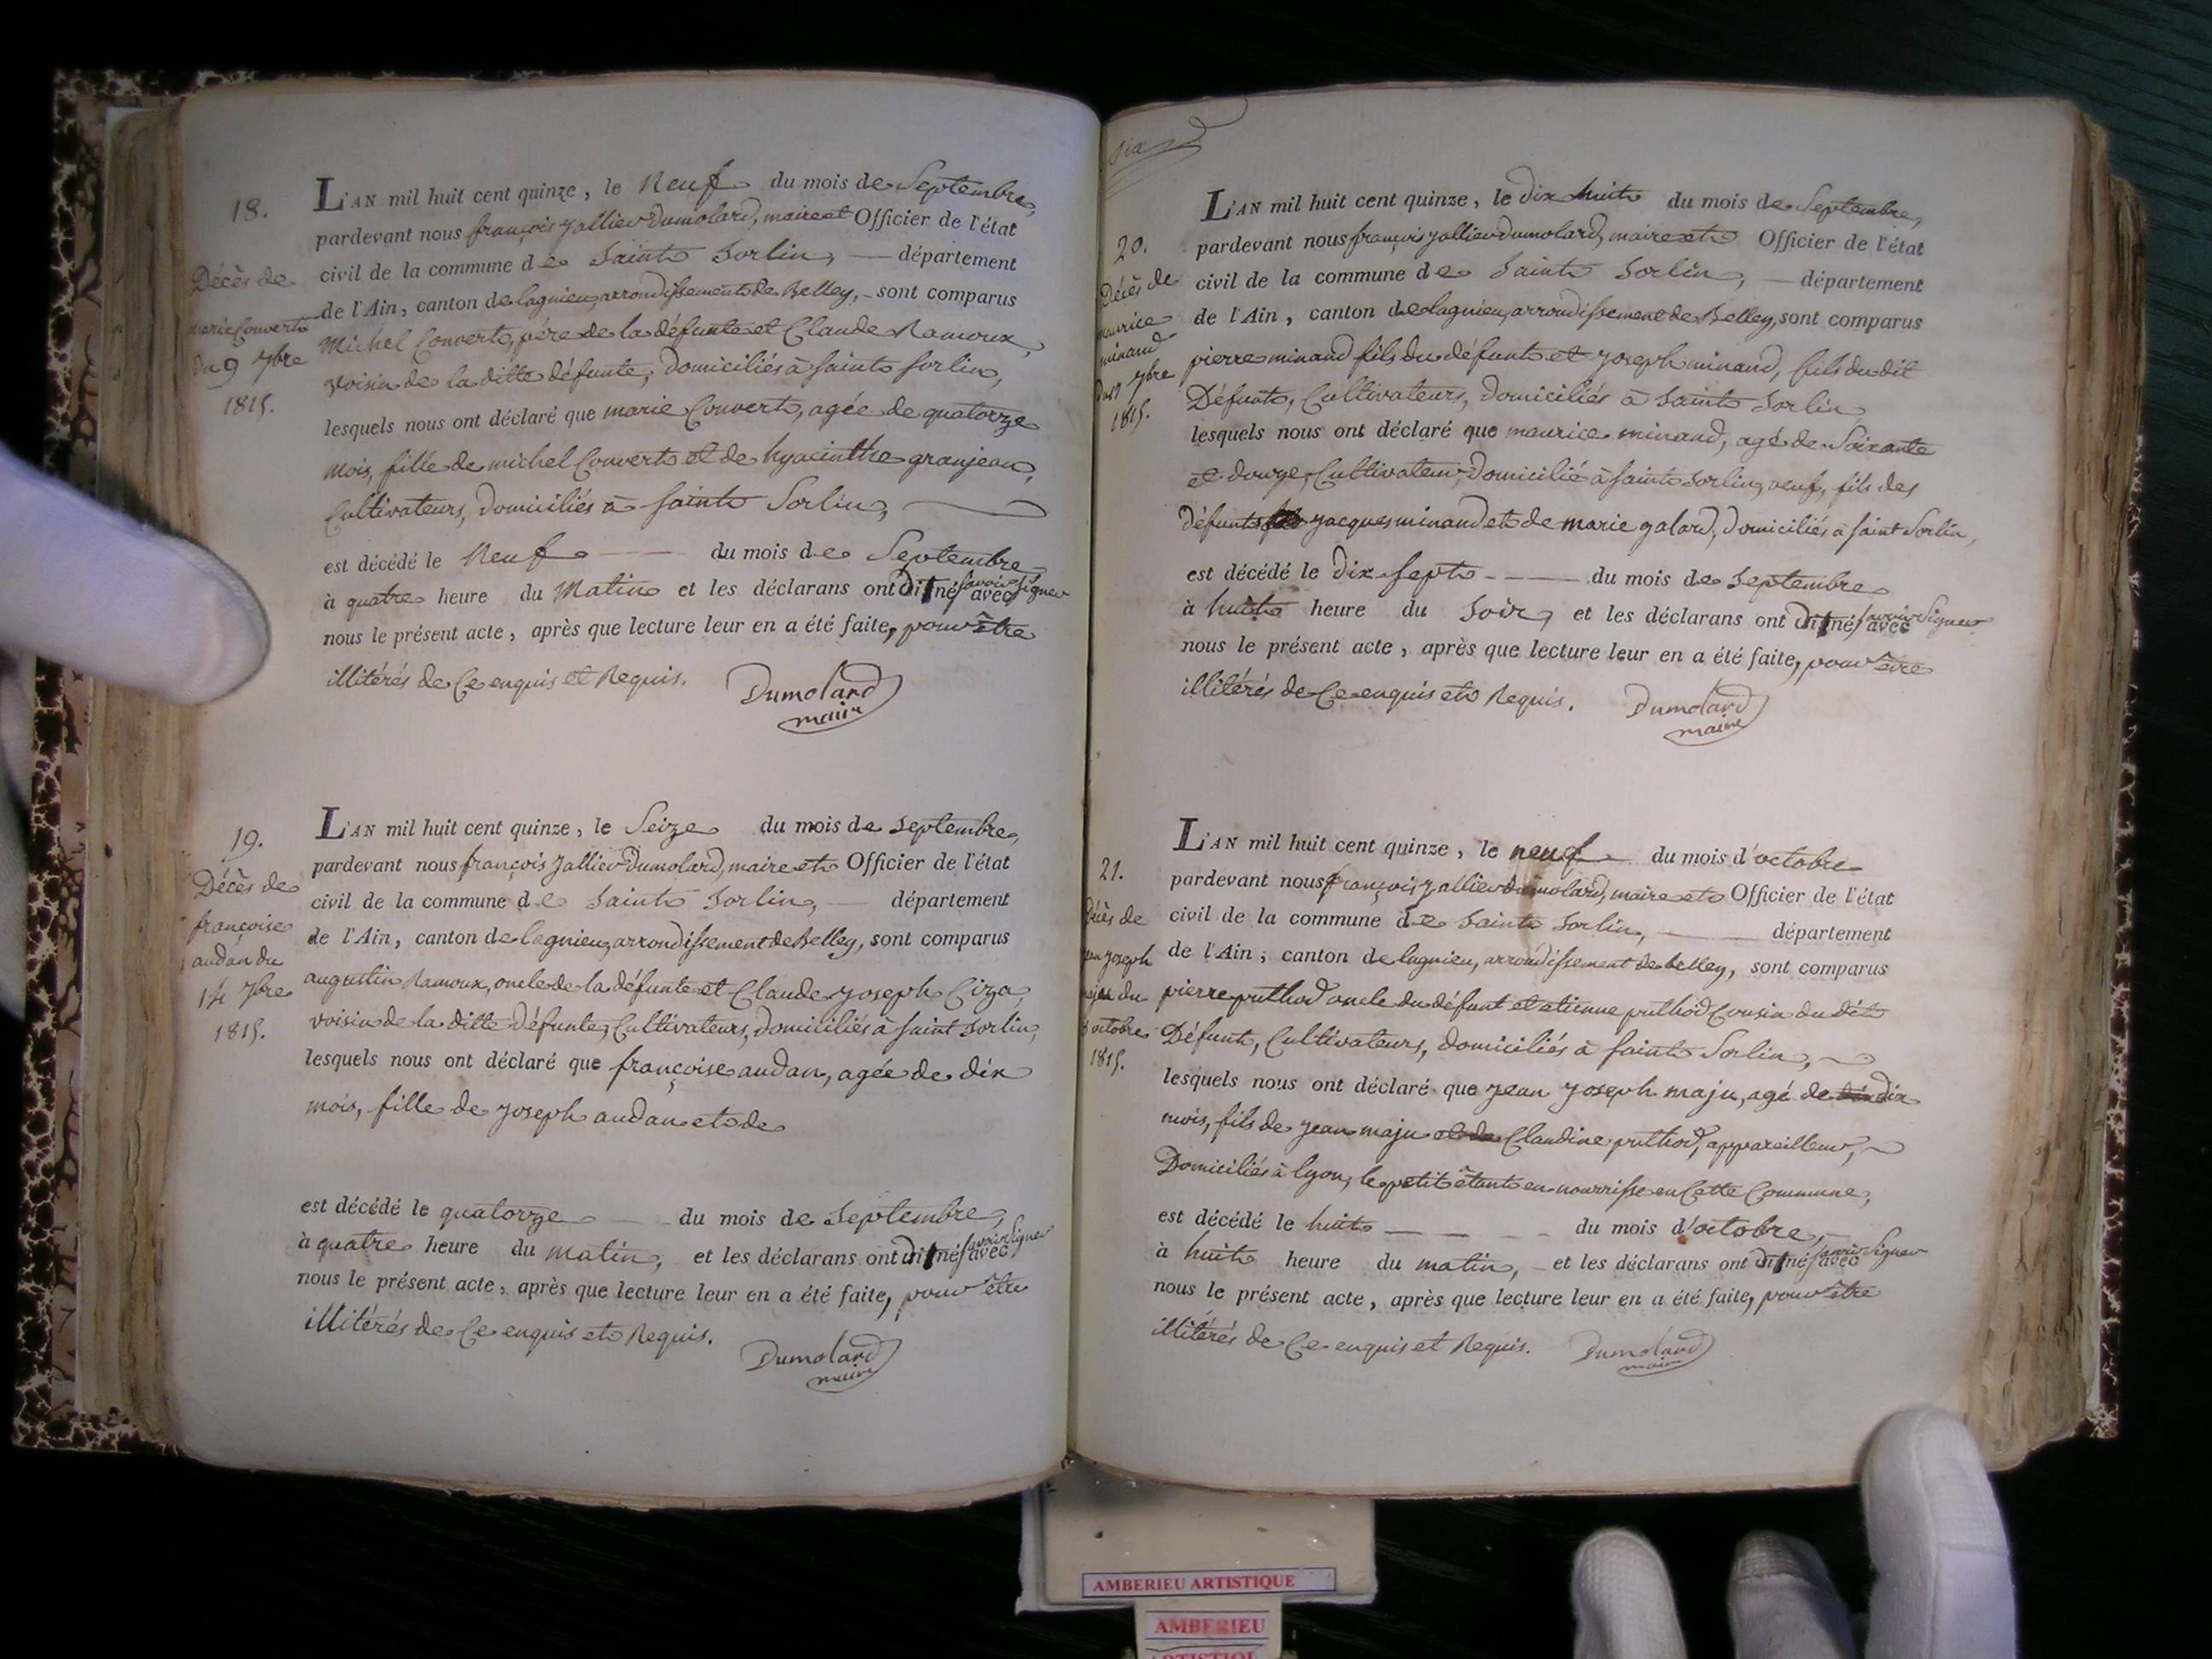 18.
Décès de
marie Convert
du 9 7bre
1815.
L'AN mil huit cent quinze, le Neuf du mois de Septembre,
pardevant nous françois jallier Dumolard, maire et Officier de l'état
civil de la commune de Saint Sorlin, — département
de l'Ain, canton de lagnieu, arrondissement de Belley, - sont comparus
Michel Convert, père de la défunte et Claude Ramoux,
voisin de la ditte défunte, Domiciliés à saint sorlin,
lesquels nous ont déclaré que marie Convert, agée de quatorze
mois, fille de michel Convert et de hyacinthe granjean,
Cultivateurs, Domiciliés à saint Sorlin,
est décédé le Neuf — du mois de Septembre
à quatre heure du Matin et les déclarans ont dit né savoir signer avec
nous le présent acte, après que lecture leur en a été faite, pour être
illitérés de Ce enquis et Requis.
Dumolard
maire
19.
Décès de
françoise
audan du
14 7bre
1815.
L'AN mil huit cent quinze, le Seize du mois de Septembre,
pardevant nous françois jallier Dumolard, maire et Officier de l'état
civil de la commune de Saint Sorlin, — département
de l'Ain, canton de lagnieu, arrondissement de Belley, sont comparus
augustin Ramoux, oncle de la défunte et Claude joseph Ciza,
voisin de la ditte défunte, Cultivateurs, Domiciliés à saint sorlin,
lesquels nous ont déclaré que françoise audan, agée de dix
mois, fille de joseph audan et de
est décédé le quatorze — du mois de Septembre,
à quatre heure du matin, et les déclarans ont dit né savoir signer avec
nous le présent acte, après que lecture leur en a été faite, pour être
illitérés de Ce enquis et Requis.
Dumolard
maire
six
20.
Décès de
maurice
minand
7bre
1815.
L'AN mil huit cent quinze, le dix huit du mois de Septembre,
pardevant nous françois jallier dumolard, maire et Officier de l'état
civil de la commune de Saint Sorlin, — département
de l'Ain, canton de lagnieu, arrondissement de Belley, sont comparus
pierre minand fils du défunt et joseph minand, fils du dit
Défunt, Cultivateurs, Domiciliés à Saint Sorlin
lesquels nous ont déclaré que maurice minand, agé de Soixante
et douze, Cultivateur, Domicilié à saint sorlin, veuf, fils des
défunts jacques minand et de marie galard, Domiciliés à saint Sorlin,
est décédé le Dix sept — du mois de Septembre
à huit heure du Soir, et les déclarans ont dit né savoir Signer avec
nous le présent acte, après que lecture leur en a été faite, pour être
illitérés de Ce enquis et Requis.
Dumolard
maire
21.
Décès de
jean joseph
maju du
8 octobre
1815.
L'AN mil huit cent quinze, le neuf du mois d'octobre
pardevant nous françois jallier dumolard, maire et Officier de l'état
civil de la commune de Saint Sorlin, — département
de l'Ain, canton de lagnieu, arrondissement de belley, sont comparus
pierre puthod oncle du défunt et etienne puthod Cousin du dit
Défunt, Cultivateurs, Domiciliés à saint Sorlin,
lesquels nous ont déclaré que jean joseph maju, agé de dix
mois, fils de jean maju et de Claudine puthod, appareilleur,
Domiciliés à lyon, le petit étant en nourrisse en Cette Commune,
est décédé le huit — du mois d'octobre,
à huit heure du matin, — et les déclarans ont dit né savoir Signer avec
nous le présent acte, après que lecture leur en a été faite, pour être
illitérés de Ce enquis et Requis.
Dumolard
maire
AMBERIEU ARTISTIQUE
AMBERIEU
ARTISTIQUE